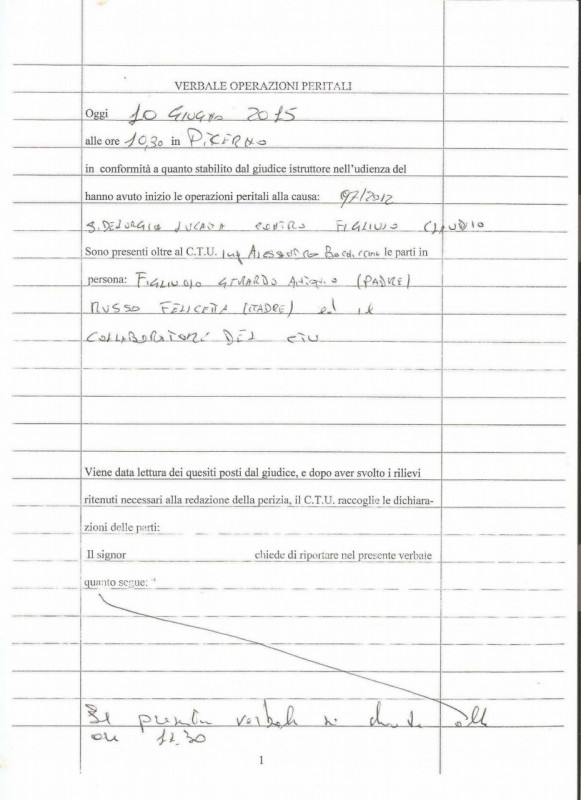 VERBALE OPERAZIONI PERITALI
Oggi 10 GIUGNO 2015
alle ore 10,30 in PICERNO
in conformità a quanto stabilito dal giudice istruttore nell'udienza del
hanno avuto inizio le operazioni peritali alla causa: 97/2012
CONTRO FIGLIUOLO CLAUDIO
Sono presenti oltre al C.T.U. ing Alessandro le parti in
persona: FIGLIUOLO GERARDO ANTONIO (PADRE)
RUSSO FELICETTA (MADRE) ed il
COLLABORATORE DEL CTU
Viene data lettura dei quesiti posti dal giudice, e dopo aver svolto i rilievi
ritenuti necessari alla redazione della perizia, il C.T.U. raccoglie le dichiara-
zioni delle parti:
Il signor chiede di riportare nel presente verbale
quanto segue: "
Il presente verbale si chiude alle
ore 11.30
1